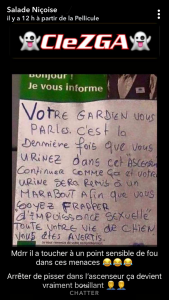 Salade Niçoise
il y a 12 h à partir de la Pellicule
CleZGA
Bonjour !
Je vous informe
VOTRE GARDIEN VOUS
PARLE, C'EST LA
DERNIÈRE fois QUE VOUS
URINEZ DANS CET ASCENSEUR
CONTINUER COMME ÇA et VOTRE
URINE SERA REMIS à UN
MARABOUT AFIN QUE VOUS
SOYEZ FRAPPER
D'IMPUISSANCE SEXUELLE
TOUTE VOTRE VIE DE CHIEN
VOUS ÊTES AVERTIS.
Mdrr il a toucher à un point sensible de fou
dans ces menaces 😂😂😂
Arrêter de pisser dans l'ascenseur ça devient
vraiment bosillant
CHATTER